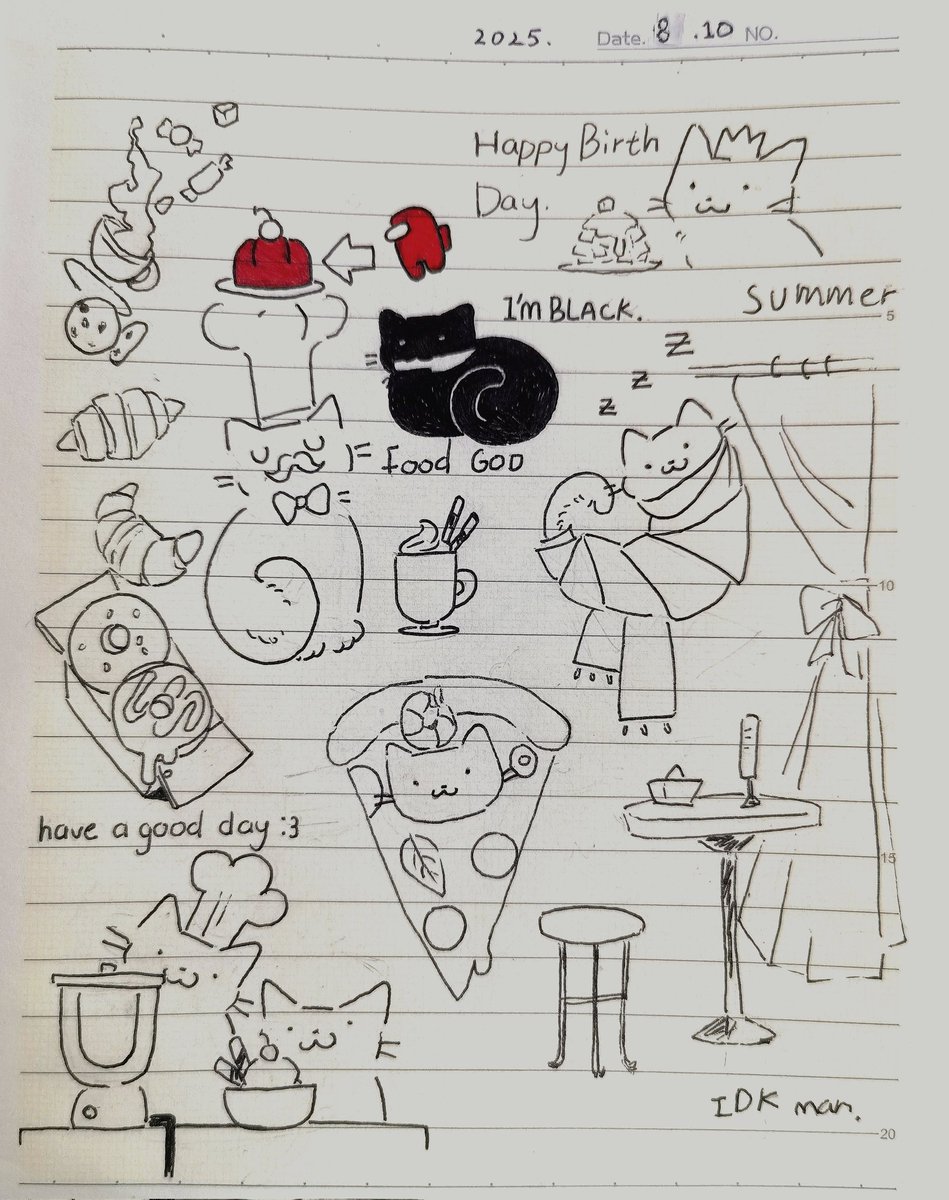 2025. Date. 8 .10 NO.
Happy Birth
Day.
Summer
I'm BLACK.
5
z
z
z
food GOD
10
have a good day :3
15
IDK man.
20